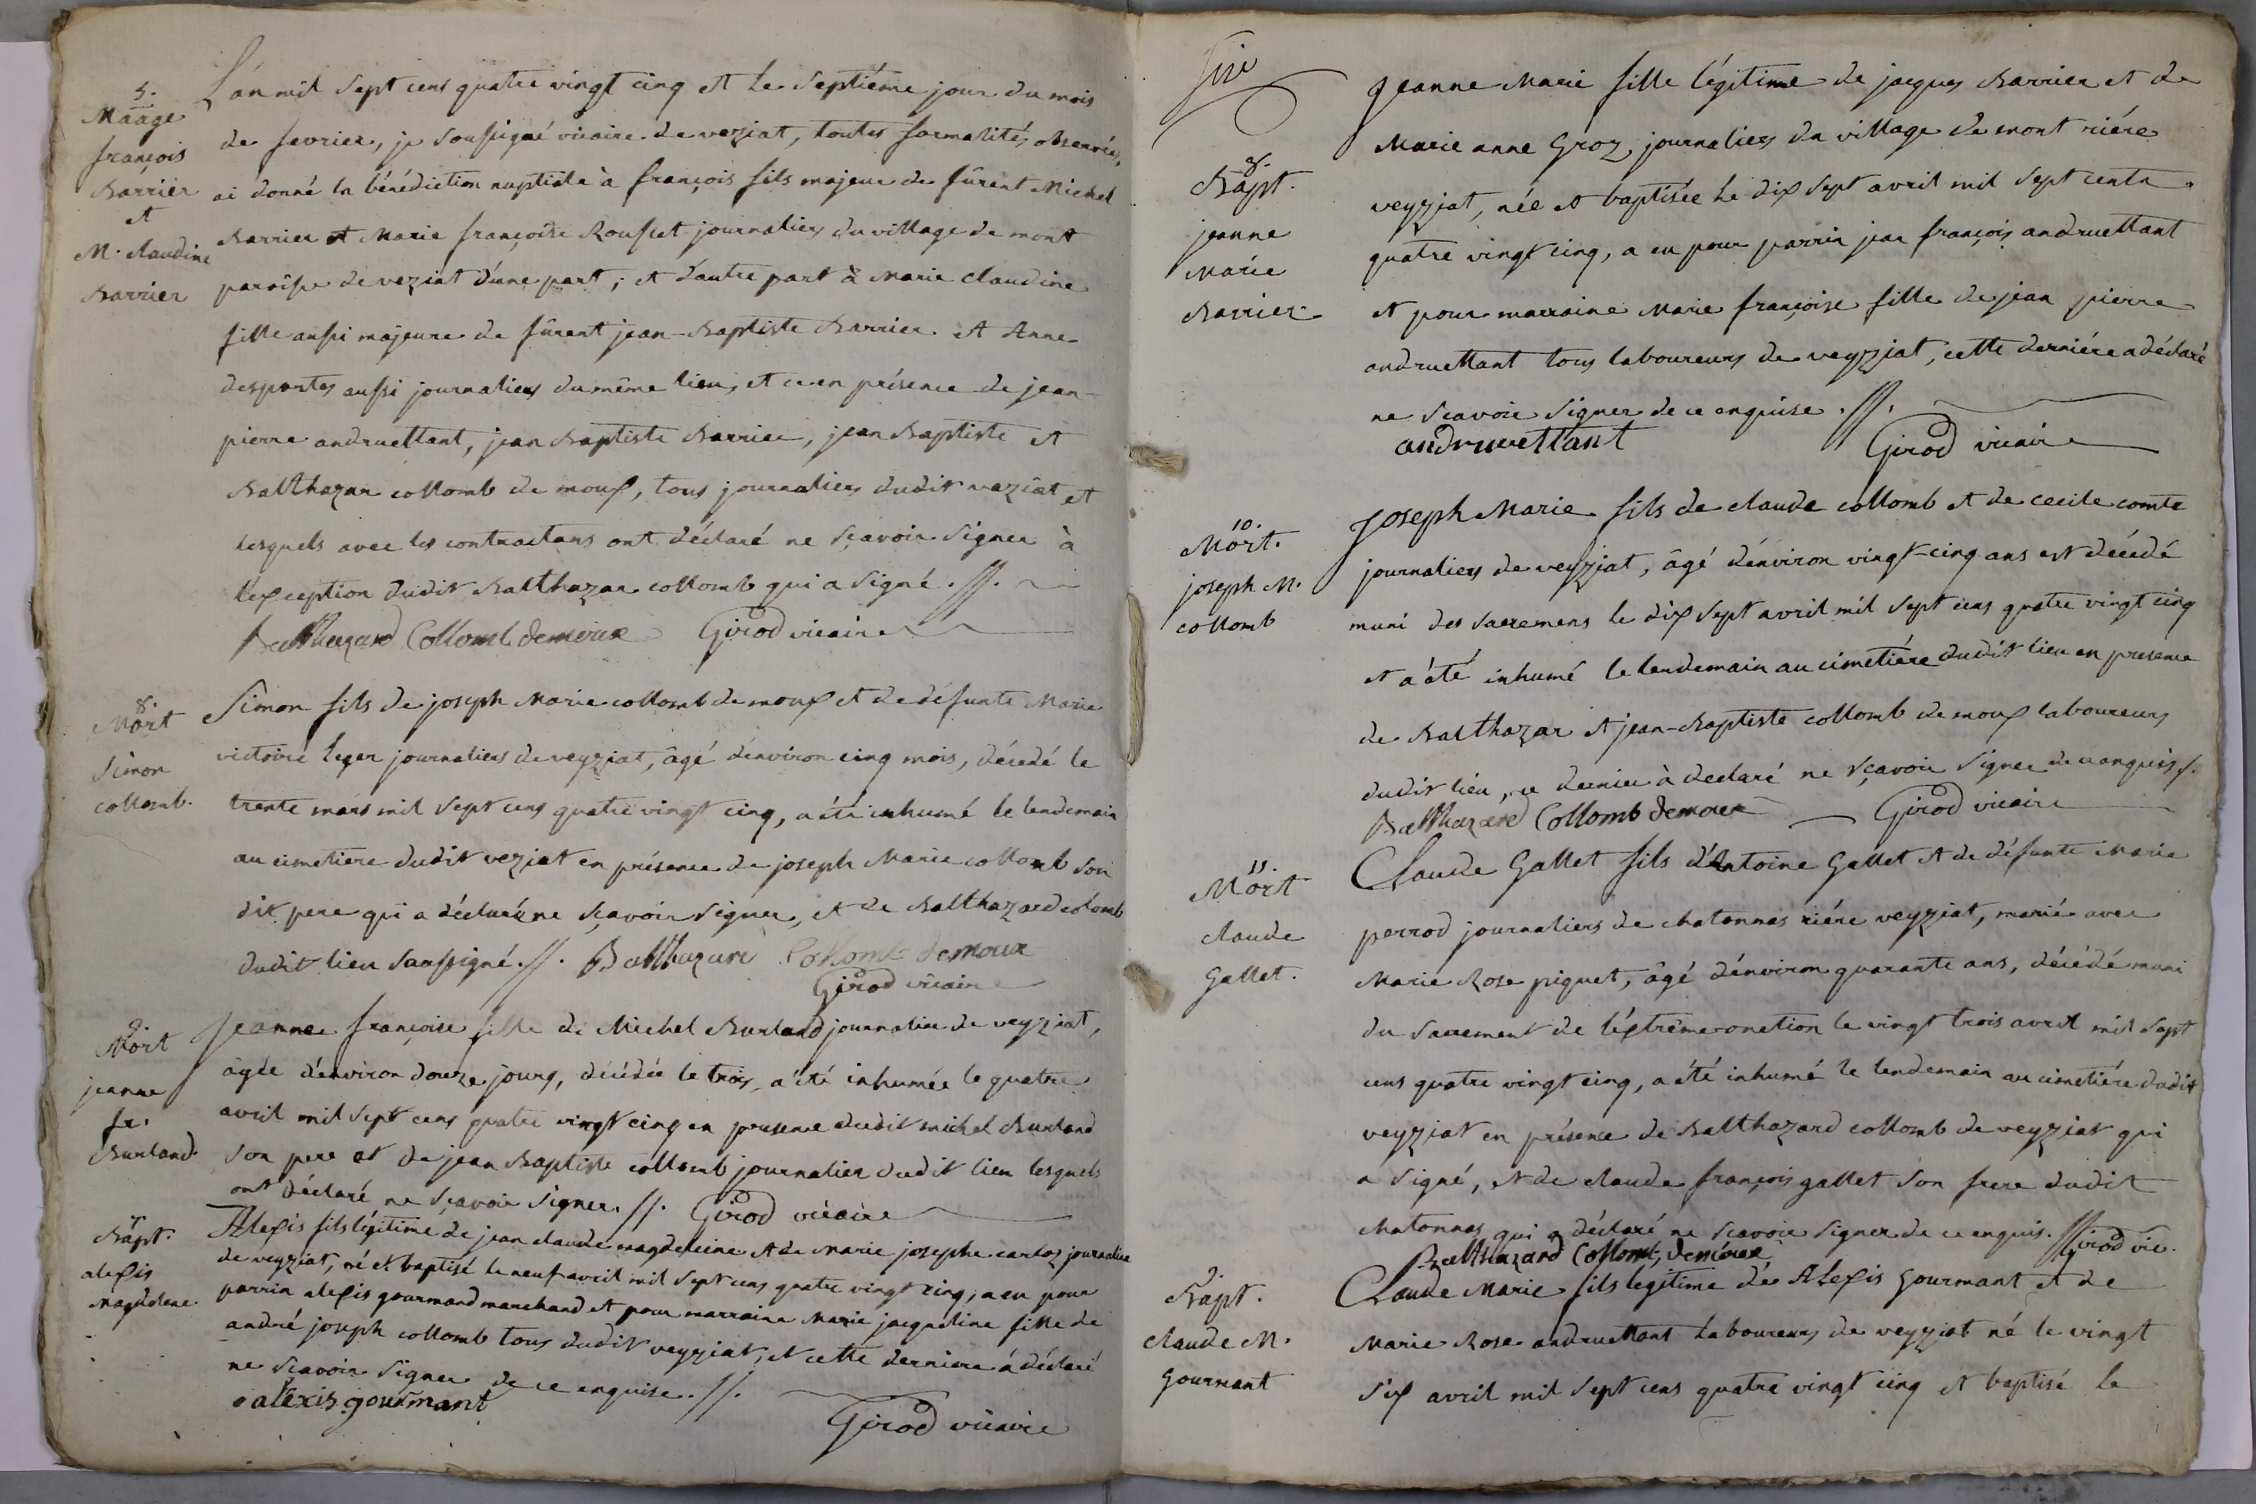 5.
Mâage
françois
Barrier
et
M. claudine
Barrier
L'an mil sept cens quatre vingt cinq et le septiême jour du mois
de fevrier, je soussigné vicaire de veziat, toutes formalités observées,
ai donné la bénédiction nuptiale à françois fils majeur de fûrent Michel
Barrier et Marie françoise Rousset journaliers du village de mont
paroisse de veziat d'une part ; et d'autre part à Marie claudine
fille aussi majeure de fûrent jean-Baptiste Barrier et Anne
desportes aussi journaliers du même lieu, et ce en présence de jean-
pierre andruettant, jean Baptiste Barrier, jean Baptiste et
Balthazar collomb de moux, tous journaliers dudit veziat et
lesquels avec les contractans ont déclaré ne sçavoir signer à
l'exception dudit Balthazar collomb qui a signé .//.
Balthazard Collomb demoux Girod vicaire
8.
Mort
Simon
collomb.
Simon fils de joseph Marie collomb de moux et de défunte Marie
victoire leger journaliers de veyziat, âgé d'environ cinq mois, décedé le
trente mars mil sept cens quatre vingt cinq, a été inhumé le lendemain
au cimetiere dudit veziat en présence de joseph Marie collomb son
dit pere qui a déclaré ne sçavoir signer, et de Balthazard colomb
dudit lieu soussigné .//. Balthazard Collomb demoux
Girod vicaire
9
Mort
jeanne
fr.
Burland.
Jeanne françoise fille de Michel Burland journalier de veyziat,
âgée d'environ douze jours, décédée le trois, a été inhumée le quatre
avril mil sept cens quatre vingt cinq en presence dudit michel Burland
son pere et de jean Baptiste collomb journalier dudit lieu lesquels
ont déclaré ne sçavoir signer. //. Girod vicaire
Bapt.
alexis
Magdelene.
Alexis fils légitime de jean claude magdeleine et de marie josephe carlos journalier
de veyziat, né et baptisé le neuf avril mil sept cens quatre vingt cinq, a eu pour
parrin alexis gourmand marchand et pour marraine Marie jacqueline fille de
andré joseph collomb tous dudit veyziat, et cette derniere a déclaré
ne sçavoir signer de ce enquise .//.
alexis gourmant
Girod vicaire
8.
Bapt.
jeanne
Marie
Barrier.
Jeanne Marie fille légitime de jacques Barrier et de
Marie anne Groz, journaliers du village de mont riére
veyziat, née et baptisée le dix sept avril mil sept cents
quatre vingt cinq, a eu pour parrin jean françois andruettant
et pour marraine Marie françoise fille de jean pierre
andruettant tous laboureurs de veyziat, cette derniére a déclaré
ne scavoir signer de ce enquise .//.
andruettant Girod vicaire
10.
Mort.
joseph M.
collomb
Joseph Marie fils de claude collomb et de cecile comte
journaliers de veyziat, âgé d'environ vingt-cinq ans est décédé
muni des sacremens le dix sept avril mil sept cens quatre vingt cinq
et a été inhumé le lendemain au cimetiére dudit lieu en presence
de Balthazar et jean-Baptiste collomb de moux laboureurs
dudit lieu, ce dernier à declaré ne sçavoir signer de ce enquis //.
Balthazard Collomb demoux Girod vicaire
11.
Mort
claude
Gallet.
Claude Gallet fils d'Antoine Gallet et de défunte Marie
perrod journaliers de chatonnas riére veyziat, marié avec
Marie Rose piquet, âgé d'environ quarante ans, décédé muni
du sacrement de l'éxtrême-onction le vingt trois avril mil sept
cens quatre vingt cinq, a été inhumé le lendemain au cimetiére dudit
veyziat en présence de Balthazard collomb de veyziat qui
a signé, et de claude françois gallet son frere dudit
chatonnas qui a déclaré ne scavoir signer de ce enquis. // Girod vic.
Balthazard Collomb demoux
9
Bapt.
claude M.
Gourmant
Claude Marie fils legitime de Alexis Gourmant et de
Marie Rose andruettant laboureurs de veyziat né le vingt
six avril mil sept cens quatre vingt cinq et baptisé le